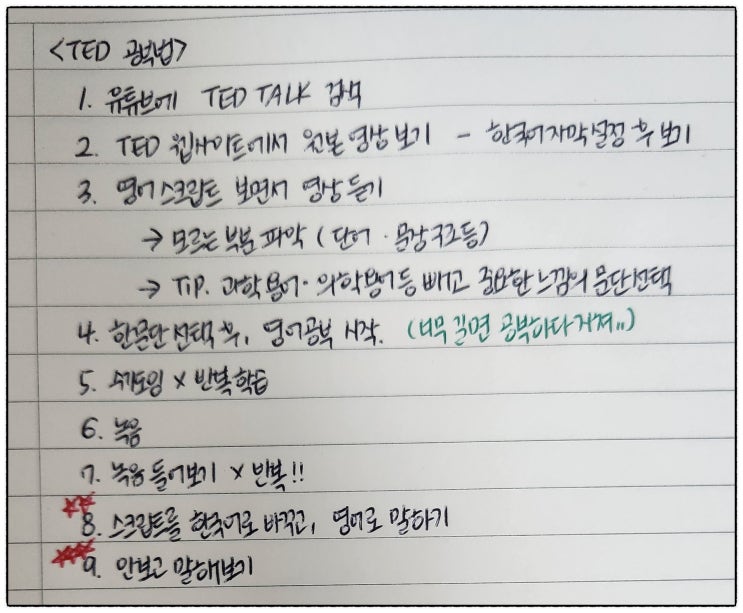 <TED 공부법>
1. 유튜브에 TED TALK 검색
2. TED 웹사이트에서 원본 영상 보기 - 한국어자막 설정 후 보기
3. 영어 스크립트 보면서 영상듣기
→ 모르는 부분 파악 (단어 · 문장구조 등)
→ TIP. 과학용어 · 의학용어 등 빼고 중요한 느낌의 문단선택
4. 한문단 선택 후, 영어공부 시작. (너무 길면 공부하다 지쳐..)
5. 쉐도잉 × 반복학습
6. 녹음
7. 녹음 들어보기 × 반복!!
8. 스크립트를 한국어로 바꾸고, 영어로 말하기
9. 안보고 말해보기